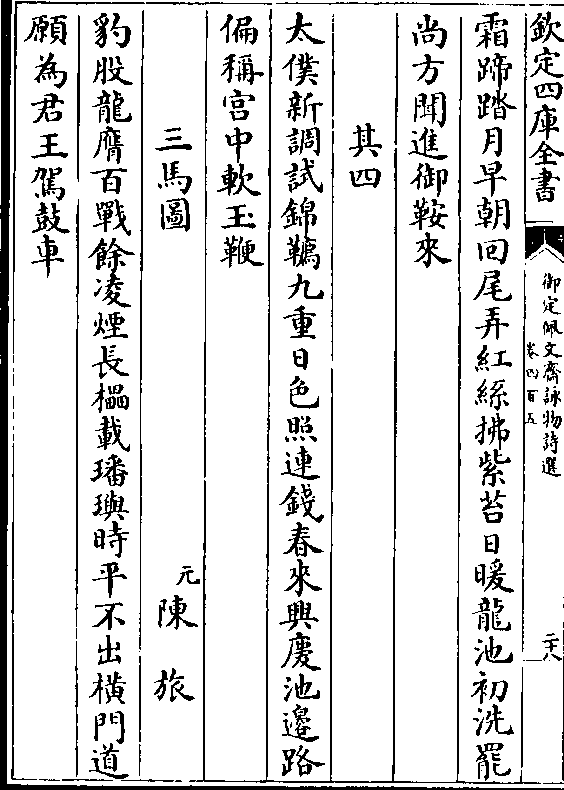 欽定四庫全書
御定佩文齋詠物詩選
卷四百五
二十八
霜蹄踏月早朝回尾弄紅絲拂紫苔日暖龍池初洗罷
尚方聞進御鞍來
其四
太僕新調試錦韉九重日色照連錢春來興慶池邊路
偏稱宫中軟玉鞭
三馬圖
元陳旅
豹股龍膺百戰餘凌煙長櫑載璠璵時平不出横門道
願為君王駕鼓車